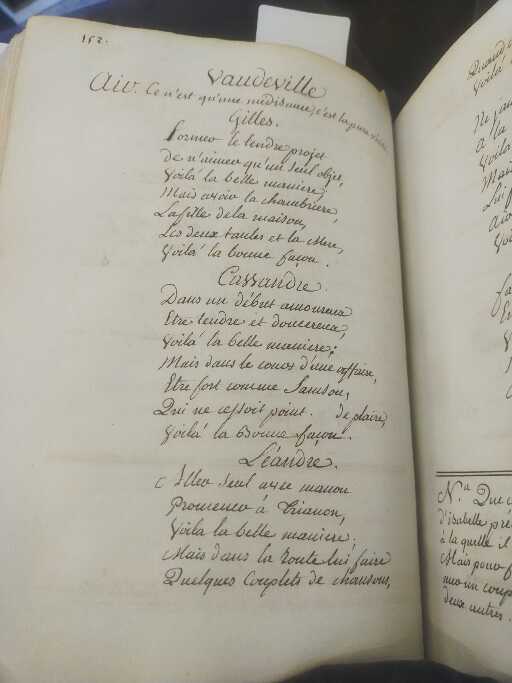 152.
Vaudeville
Air. Ce n'est qu'une médisance, c'est la pure
Gilles.
Former le tendre projet
de n'aimer qu'un seul objet,
Voilà la belle maniere;
Mais avoir la chambriere,
La fille de la maison,
Les deux tantes et la Mere,
Voilà la bonne façon.
Cassandre.
Dans un début amoureux
Etre tendre et doucereux,
Voilà la belle maniere;
Mais dans le cours d'une affaire,
Etre fort comme Samson,
Qui ne cessoit point. de plaire,
Voilà la Bonne façon.
Léandre.
Aller seul avec manon
Promener à Trianon,
Voila la belle maniere;
Mais dans la route lui faire
Quelques Couplets de chansons,
Quand
Voilà
Ne
a la
Voilà
Mais
Lui
Voilà
Na Que
d'isabelle
à la quelle il
Mais pour
un coup
deux autres.